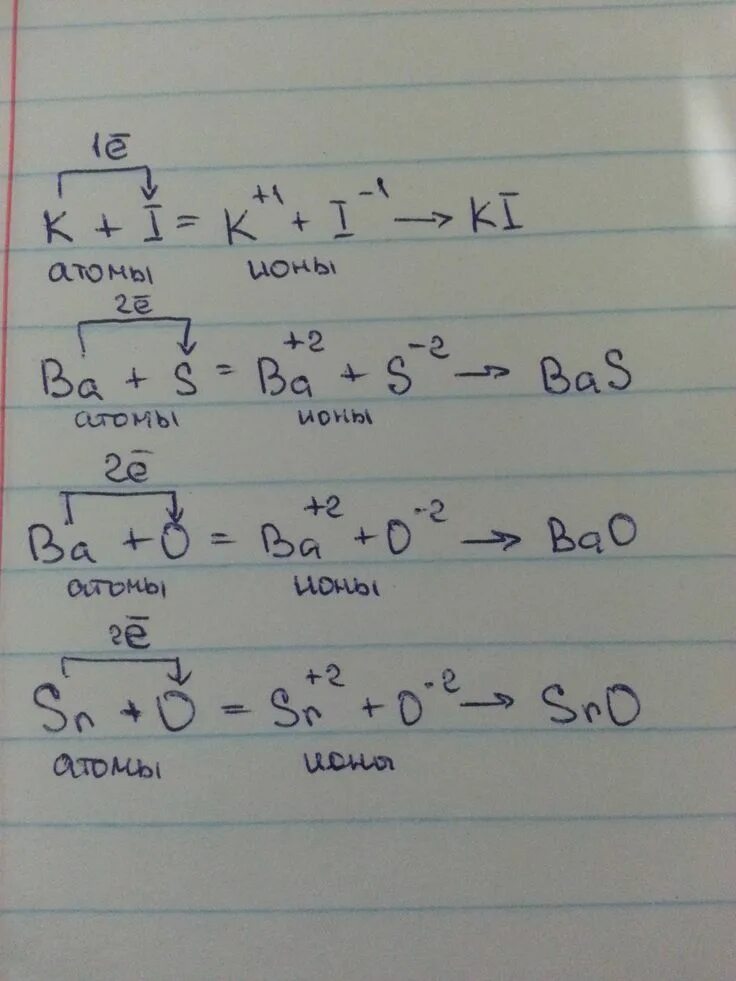 1ē
K + I = K⁺¹ + I⁻¹ → KI
атомы ионы
2ē
Ba + S = Ba⁺² + S⁻² → BaS
атомы ионы
2ē
Ba + O = Ba⁺² + O⁻² → BaO
атомы ионы
2ē
Sr + O = Sr⁺² + O⁻² → SrO
атомы ионы